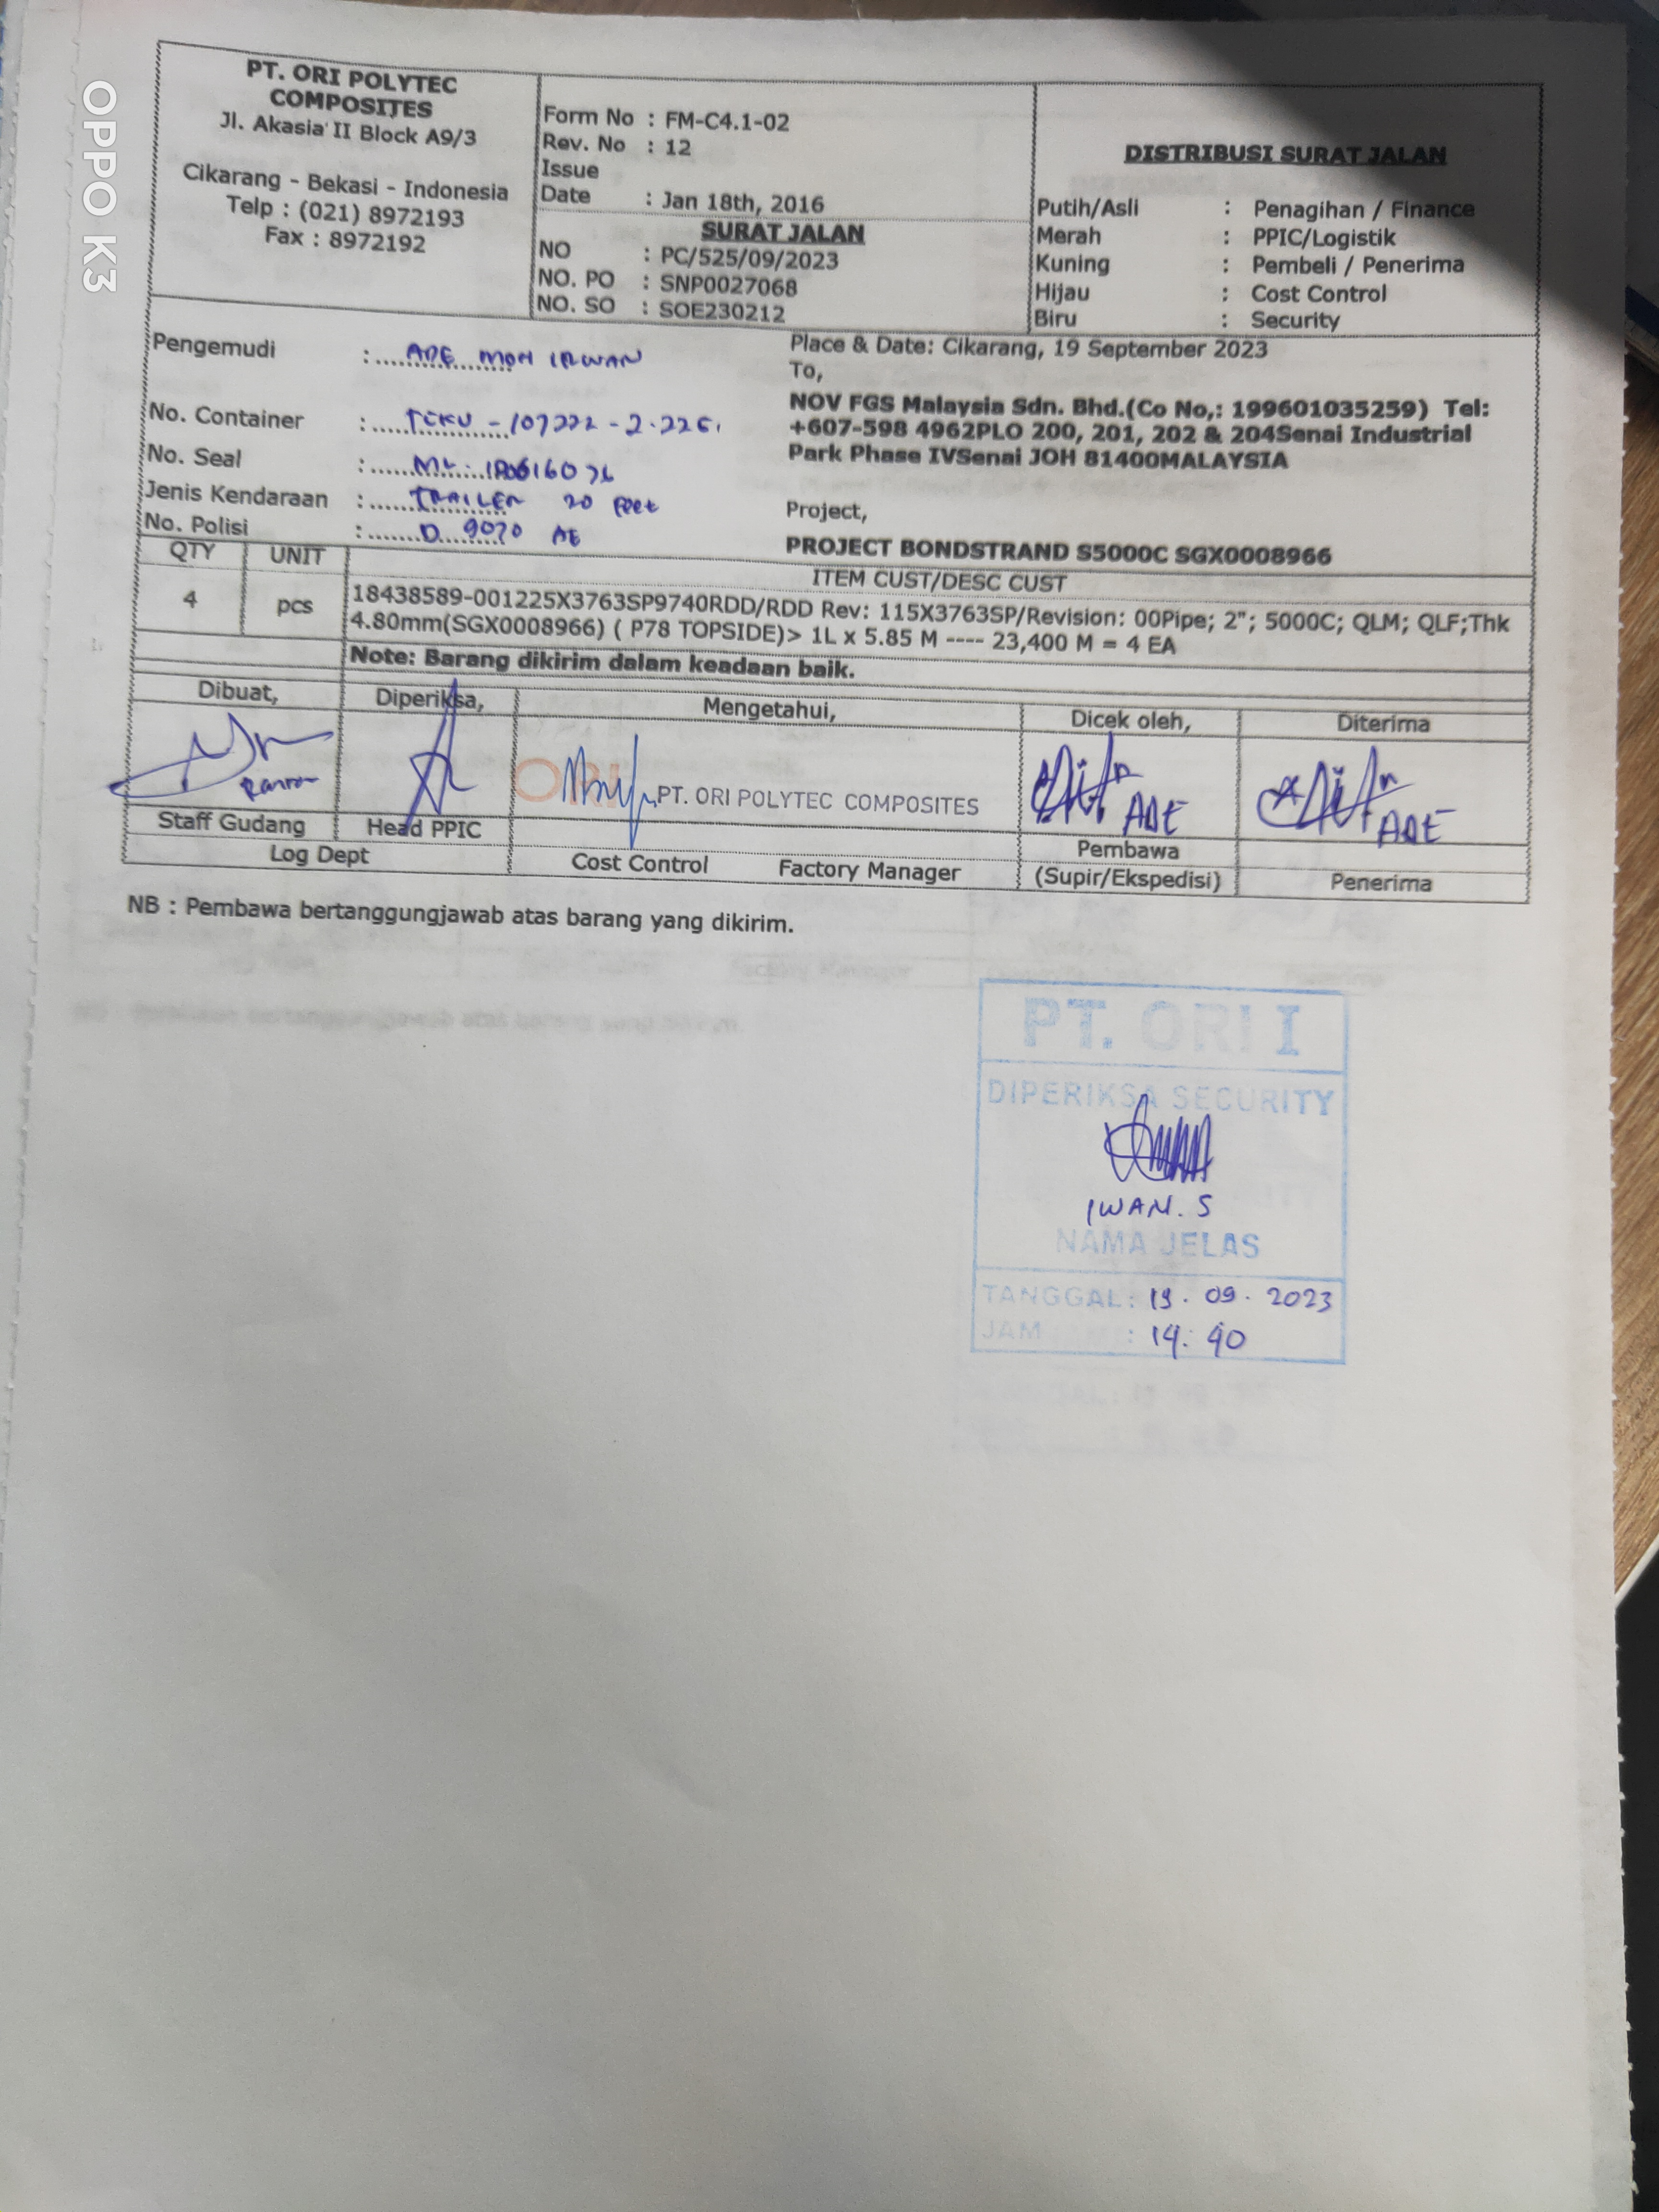 OPPO K3
PT. ORI POLYTEC
COMPOSITES
Jl. Akasia II Block A9/3
Cikarang - Bekasi - Indonesia
Telp : (021) 8972193
Fax : 8972192
Form No : FM-C4.1-02
Rev. No : 12
Issue
Date : Jan 18th, 2016
SURAT JALAN
NO : PC/525/09/2023
NO. PO : SNP0027068
NO. SO : SOE230212
DISTRIBUSI SURAT JALAN
Putih/Asli : Penagihan / Finance
Merah : PPIC/Logistik
Kuning : Pembeli / Penerima
Hijau : Cost Control
Biru : Security
Pengemudi : ADE MOH IRWAN
No. Container :
No. Seal :
Jenis Kendaraan : TRAILER 20 Feet
No. Polisi : D 9070 AE
Place & Date: Cikarang, 19 September 2023
To,
NOV FGS Malaysia Sdn. Bhd.(Co No,: 199601035259) Tel:
+607-598 4962PLO 200, 201, 202 & 204Senai Industrial
Park Phase IVSenai JOH 81400MALAYSIA
Project,
PROJECT BONDSTRAND S5000C SGX0008966
QTY UNIT ITEM CUST/DESC CUST
4 pcs 18438589-001225X3763SP9740RDD/RDD Rev: 115X3763SP/Revision: 00Pipe; 2"; 5000C; QLM; QLF;Thk
4.80mm(SGX0008966) ( P78 TOPSIDE)> 1L x 5.85 M ---- 23,400 M = 4 EA
Note: Barang dikirim dalam keadaan baik.
Dibuat, Diperiksa, Mengetahui, Dicek oleh, Diterima
ORI PT. ORI POLYTEC COMPOSITES
ADE ADE
Staff Gudang Head PPIC
Log Dept Cost Control Factory Manager
Pembawa
(Supir/Ekspedisi) Penerima
NB : Pembawa bertanggungjawab atas barang yang dikirim.
PT. ORI I
DIPERIKSA SECURITY
IWAN. S
NAMA JELAS
TANGGAL : 19. 09. 2023
JAM : 14. 40